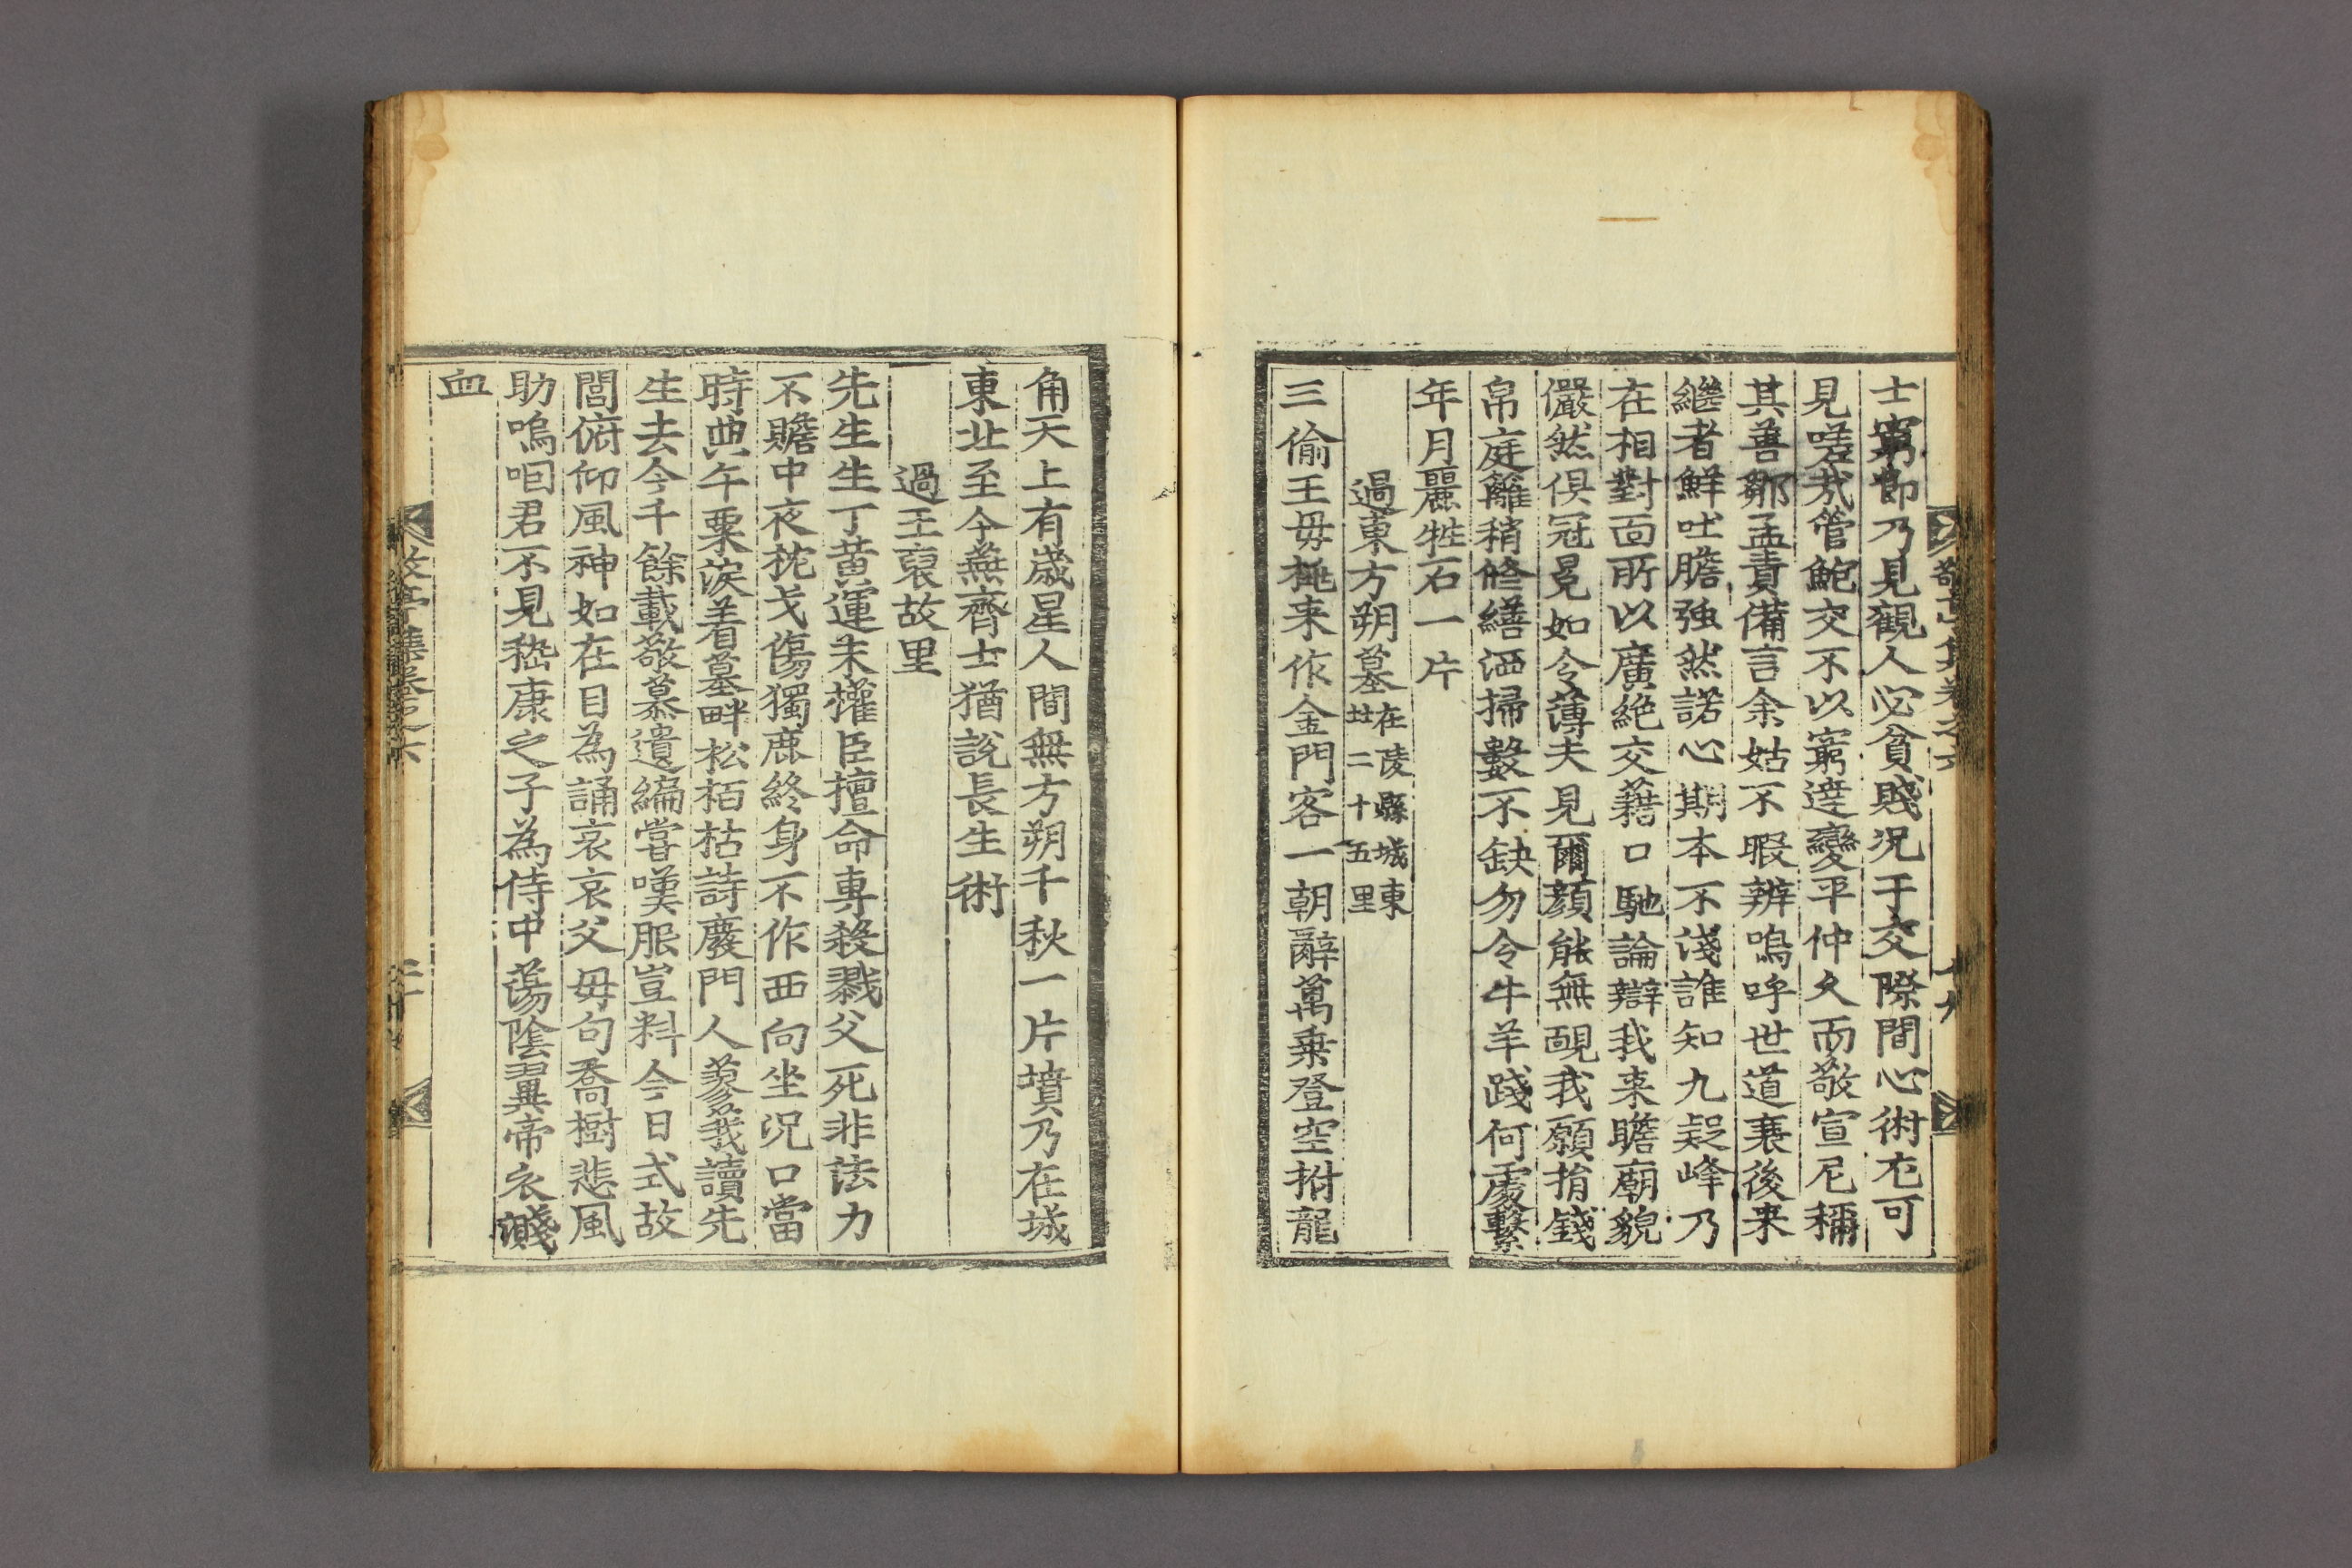 士窮節乃見觀人必貧賤况于交際間心術尤可
見嗟哉管鮑交不以窮達變平仲久而敬宣尼稱
其善鄒孟責備言余姑不暇辨嗚呼世道衰後来
継者鮮吐膽强然諾心期本不淺誰知九疑峰乃
在相對面所以廣絶交藉口馳論辯我来瞻廟貌
儼然俱冠冕如令薄夫見爾顔能無靦我願捐錢
帛庭籬稍修繕洒掃數不缺勿令牛羊踐何處繫
年月麗牲石一片
過東方朔墓在陵縣城東
廿二十五里
三偷王母桃来作金門客一朝辭萬乗登空拊龍
角天上有歲星人間無方朔千秋一片墳乃在城
東北至今無齊士猶說長生術
過王裒故里
先生生丁黄運末權臣擅命專殺戮父死非法力
不贍中夜枕戈傷獨鹿終身不作西向坐况口當
時典午粟淚着墓畔松栢枯詩廢門人蓼莪讀先
生去今千餘載敬慕遺編甞嘆服豈料今日式故
閭俯仰風神如在目為誦哀哀父母句喬樹悲風
助嗚咽君不見嵇康之子為侍中蕩陰翼帝衣濺
血
敬亭集卷之六